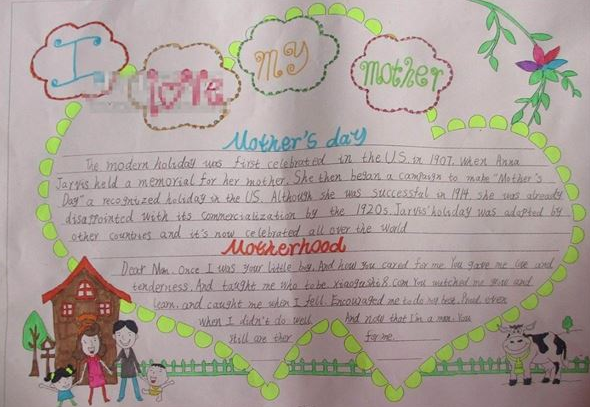 I
love
my
mother
Mother's day
The modern holiday was first celebrated in the U.S. in 1907. When Anna
Jarvis held a memorial for her mother. She then began a campaign to make "Mother's
Day" a recognized holiday in the US. Although she was successful in 1914, she was already
disappointed with its commercialization by the 1920s. Jarvis' holiday was adopted by
other countries and it's now celebrated all over the world
Motherhood
Dear Mom. Once I was your little boy. And how you cared for me You gave me love and
tenderness. And taught me who to be. xiaogushi8 com You watched me grow and
learn. and caught me when I fell. Encouraged me to do my best. Proud even
when I didn't do well And now that I'm a man. You
still are ther for me.